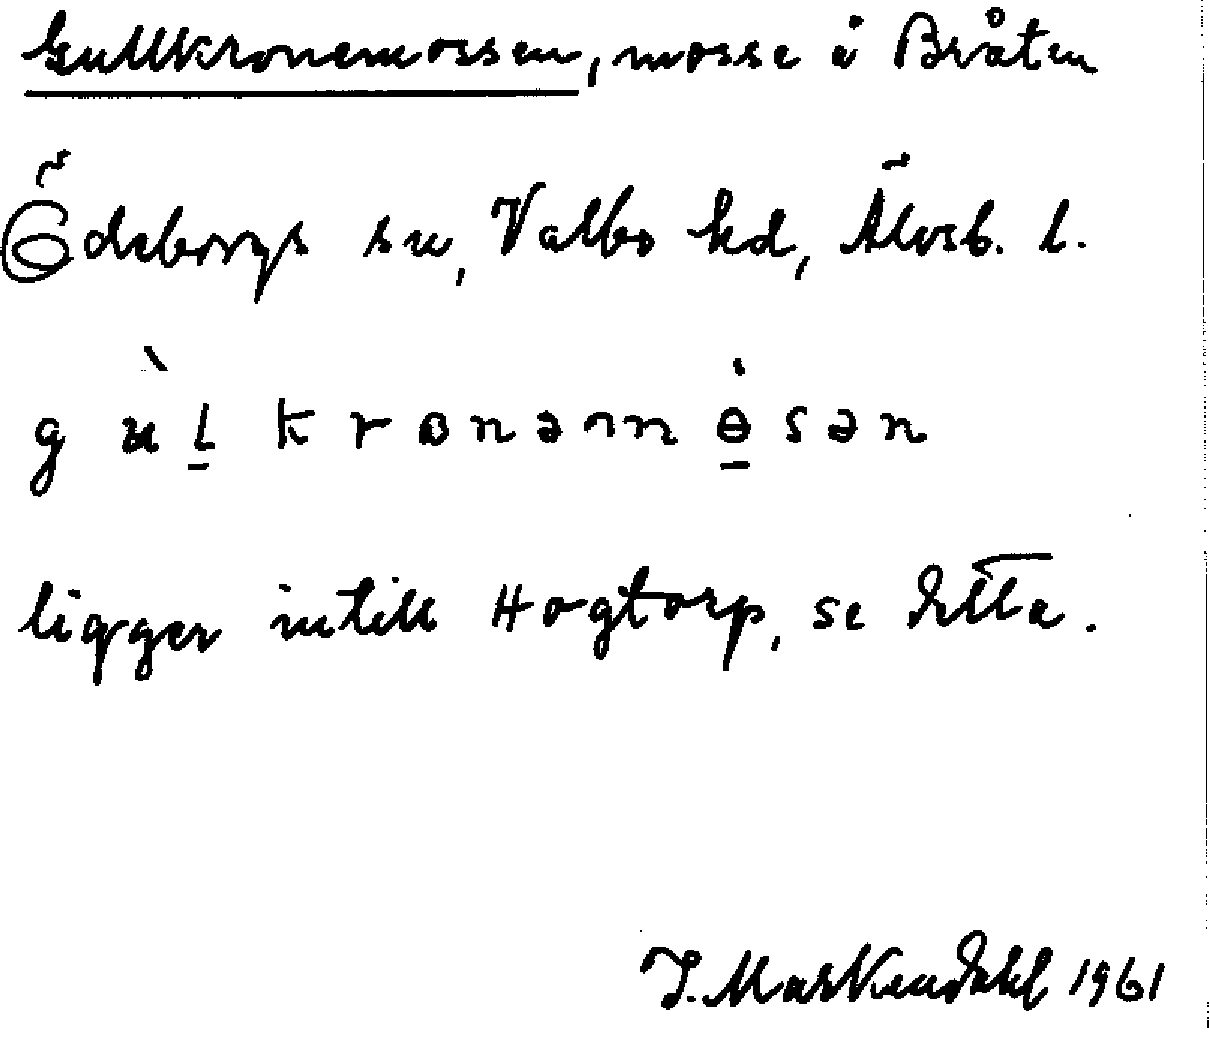 Gullkronemossen, mosse i Bråten
Ödeborgs sn, Valbo hd, Älvsb. l.
g ù ḻ k r ɷ n ə m ө̱̇ s ə n
ligger intill Hogtorp, se detta.
J. Markendahl 1961